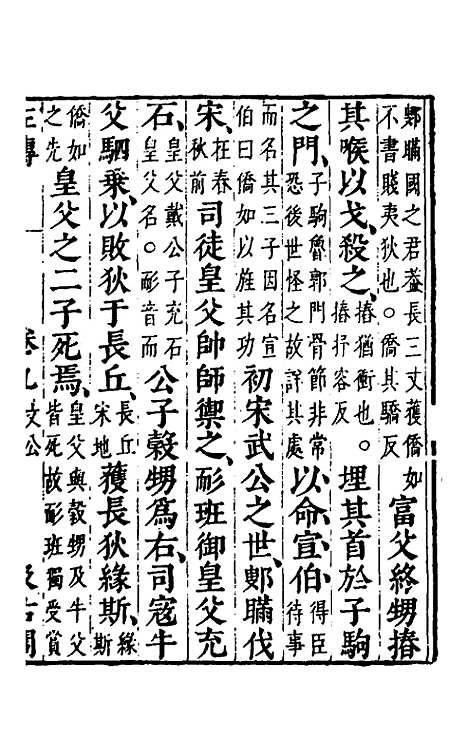 鄋瞞國之君葢長三丈獲僑如不書賤夷狄也○僑其驕反富父終甥摏
其喉以戈、殺之、摏猶衝也○摏抒容反埋其首於子駒
之門、子駒魯郭門骨節非常恐後世怪之故詳其處以命宣伯、得臣待事
而名其三子因名宣伯曰僑如以旌其功初宋武公之世、鄋瞞伐
宋、在春秋前司徒皇父帥師禦之、耏班御皇父充
石、皇父戴公子充石皇父名○耏音而公子縠甥爲右、司寇牛
父駟乘、以敗狄于長丘、長丘宋地獲長狄緣斯、緣斯
僑如之先皇父之二子死焉、皇父與縠甥及牛父皆死故耏班獨受賞
左傳 卷九文公